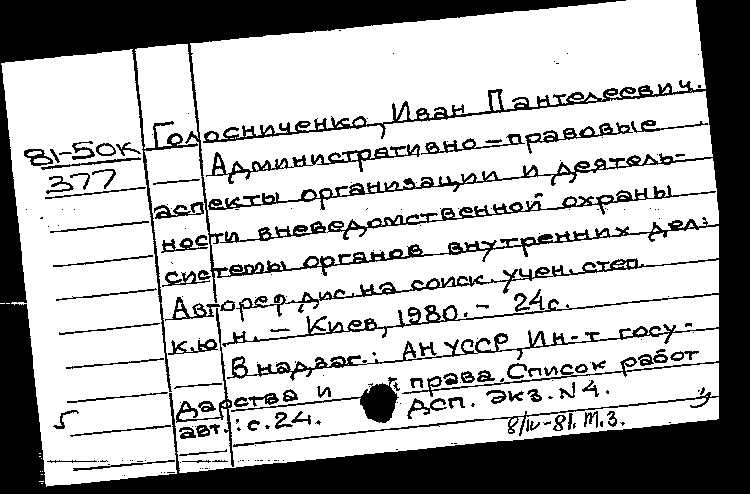 Голосниченко, Иван Пантелеевич.
81-50к
377
Административно-правовые
аспекты организации и деятель-
ности вневедомственной охраны
системы органов внутренних дел:
Автореф. дис. на соиск. учен. степ.
к.ю.н. - Киев, 1980. - 24с.
В надзаг.: АН УССР, Ин-т госу-
дарства и права. Список работ
авт.: с.24. ДСП. Экз. N4.
8/IV-81. Т.З.